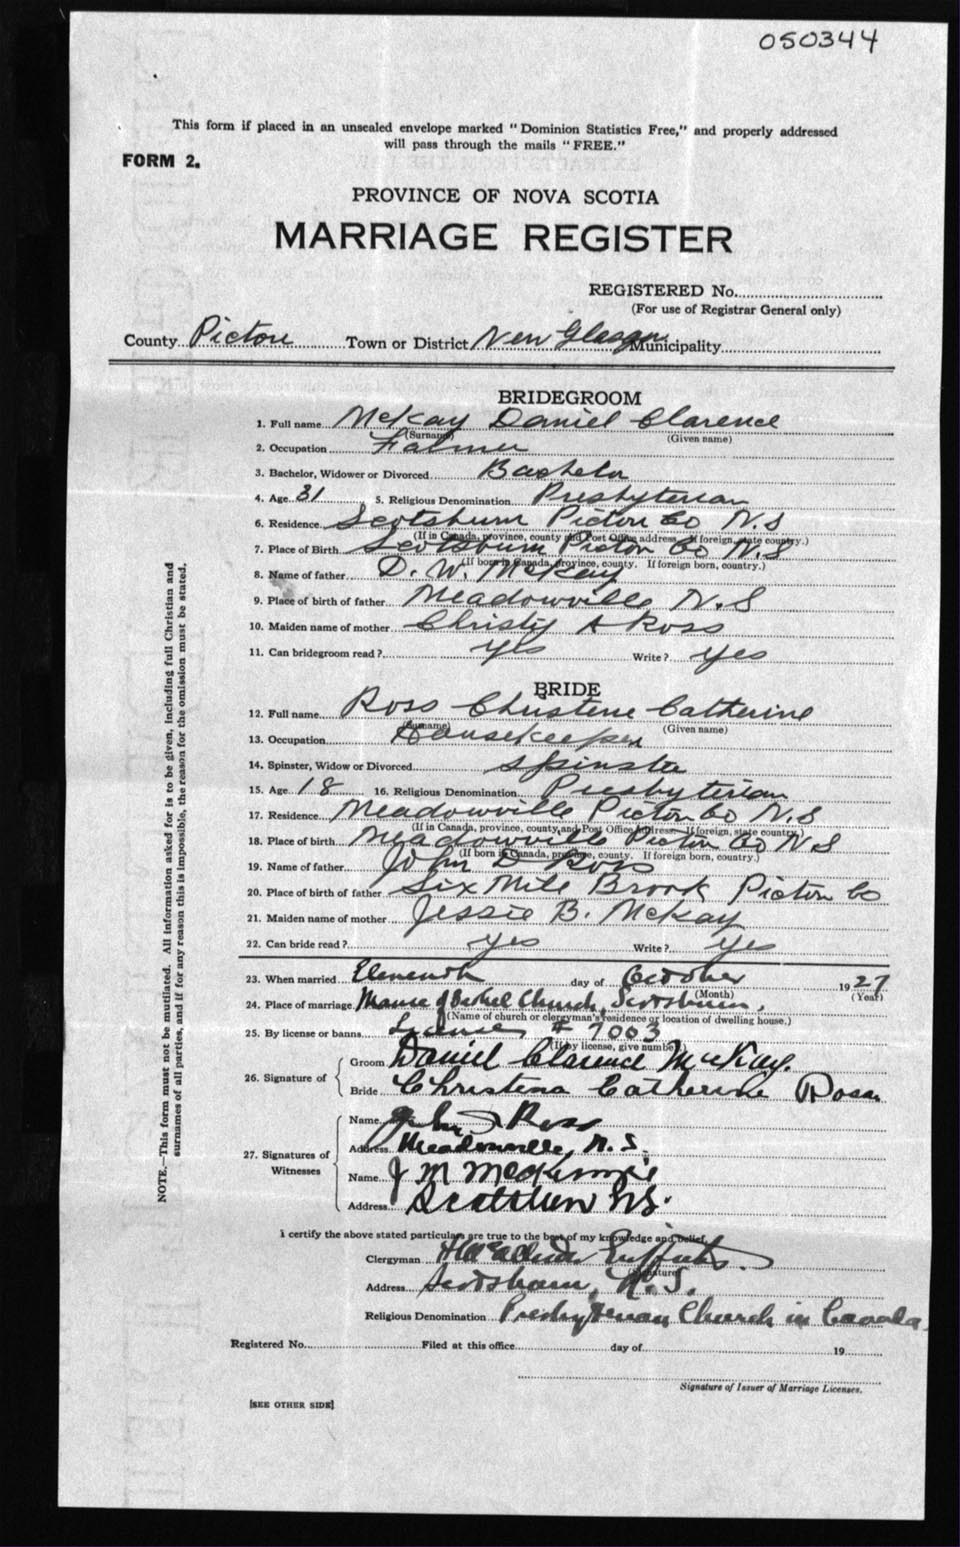 050344
This form if placed in an unsealed envelope marked "Dominion Statistics Free," and properly addressed
will pass through the mails "FREE."
FORM 2.
PROVINCE OF NOVA SCOTIA
MARRIAGE REGISTER
REGISTERED No.
(For use of Registrar General only)
County Pictou Town or District New Glasgow Municipality
BRIDEGROOM
1. Full name McKay Daniel Clarence
(Surname) (Given name)
2. Occupation Farmer
3. Bachelor, Widower or Divorced Bachelor
4. Age 31 5. Religious Denomination Presbyterian
6. Residence Scotsburn Pictou Co N.S
(If in Canada, province, county and Post Office address. If foreign, state country.)
7. Place of Birth Scotsburn Pictou Co N.S
(If born in Canada, province, county. If foreign born, country.)
8. Name of father D. W. McKay
9. Place of birth of father Meadowville N.S
10. Maiden name of mother Christy A Ross
11. Can bridegroom read? yes Write? yes
BRIDE
12. Full name Ross Christene Catherine
(Surname) (Given name)
13. Occupation Housekeeper
14. Spinster, Widow or Divorced spinster
15. Age 18 16. Religious Denomination Presbyterian
17. Residence Meadowville Pictou Co N.S
(If in Canada, province, county, and Post Office Address. If foreign, state country.)
18. Place of birth Meadowville Pictou Co N S
(If born in Canada, province, county. If foreign born, country.)
19. Name of father John D Ross
20. Place of birth of father Six Mile Brook Pictou Co
21. Maiden name of mother Jessie B. McKay
22. Can bride read? yes Write? yes
23. When married Eleventh day of October 1927
(Month) (Year)
24. Place of marriage Manse of Bethel Church, Scotsburn,
(Name of church or clergyman's residence or location of dwelling house.)
25. By license or banns License # 7003
(If by license, give number)
26. Signature of Groom Daniel Clarence McKay.
Bride Christena Catherine Ross
27. Signatures of Witnesses Name John D Ross
Address Meadowville, N. S.
Name J M McKenzie
Address Scotsburn NS.
I certify the above stated particulars are true to the best of my knowledge and belief,
Clergyman
(Signature)
Address Scotsburn, N.S.
Religious Denomination Presbyterian Church in Canada.
Registered No. Filed at this office day of 19
Signature of Issuer of Marriage Licenses.
[SEE OTHER SIDE]
NOTE.—This form must not be mutilated. All information asked for is to be given, including full Christian and
surnames of all parties, and if for any reason this is impossible, the reason for the omission must be stated.